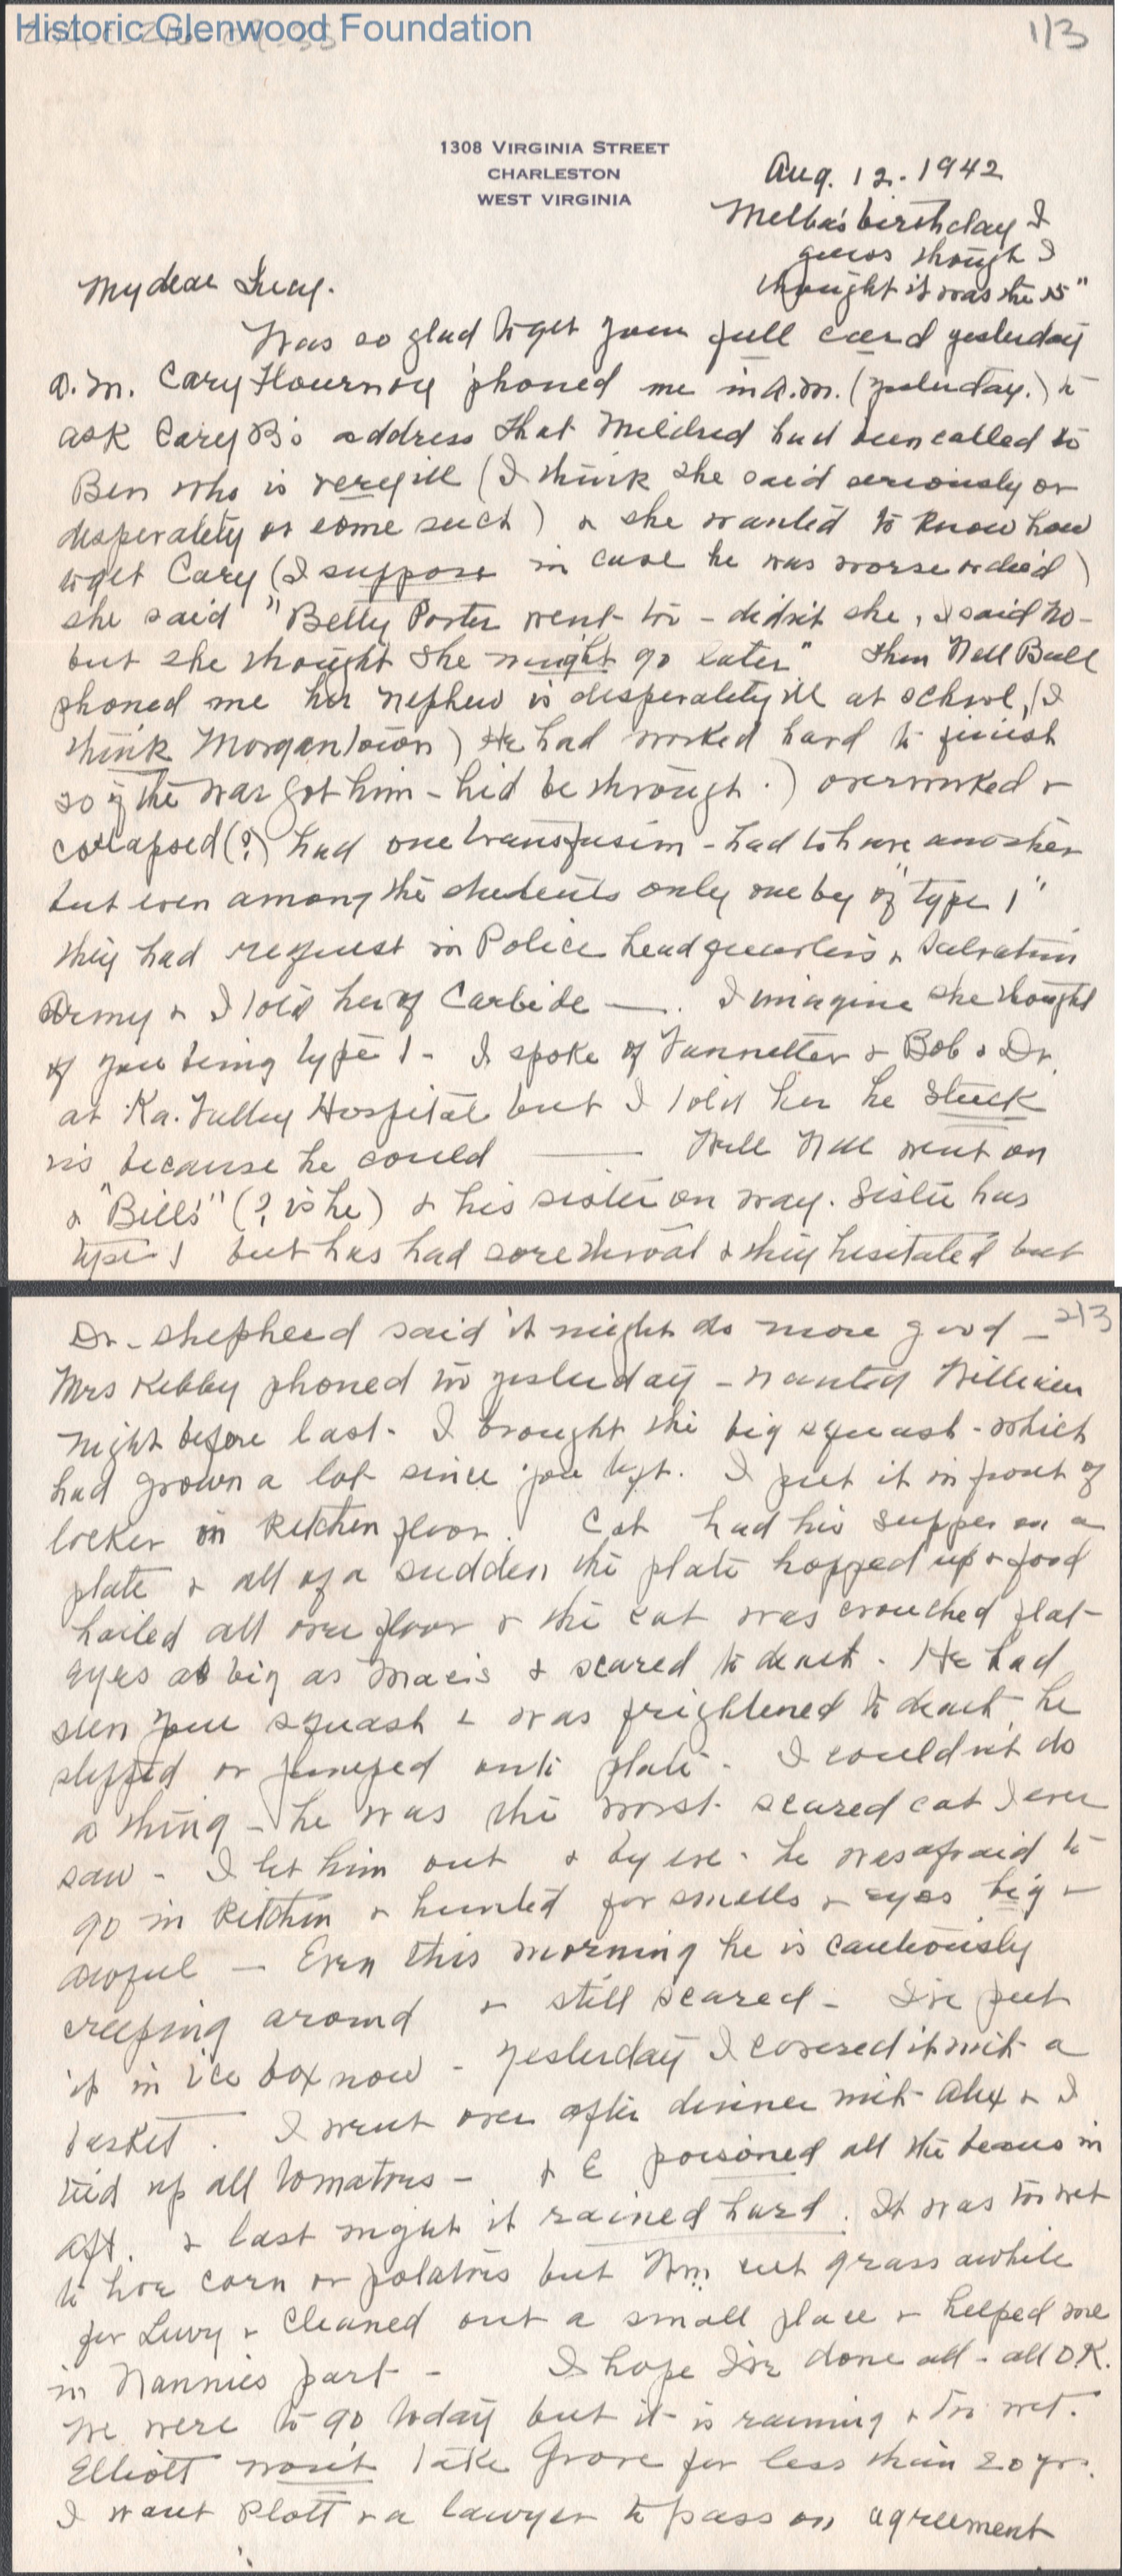 Historic Glenwood Foundation
1/3
1308 VIRGINIA STREET
CHARLESTON
WEST VIRGINIA
Aug. 12. 1942
Melba's birthday I
guess though I
thought it was the 15"
My dear Lucy.
Was so glad to get your full card yesterday
a.m. Cary Flournoy phoned me in a.m. (yesterday.) to
ask Cary B's address that Mildred had been called to
Ben who is very ill (I think she said seriously or
desperately or some such) & she wanted to know how
to get Cary (I suppose in case he was worse or died)
she said "Betty Porter went too - didn't she, I said no -
but she thought she might go later" Then Nell Bull
phoned me her nephew is desperately ill at school, (I
think Morgantown) He had worked hard to finish
so if the war got him - he'd be through.) overworked &
collapsed (?) had one transfusion - had to have another
but even among the students only one boy of "type 1"
they had request in Police headquarters & Salvation
Army & I told her of Carbide —. I imagine she thought
of you being type 1 - I spoke of & Bob & Dr.
at Ka. Valley Hospital but I told her he stuck
us because he could — Well Nell went on
& "Bills" (? is he) & his sister on way. Sister has
type 1 but has had sore throat & they hesitated but
2/3
Dr. Shepherd said it might do more good -
Mrs Kebby phoned too yesterday - wanted William
night before last. I brought the big squash - which
had grown a lot since you left. I put it in front of
locker in kitchen floor. Cat had his supper on a
plate & all of a sudden the plate hopped up & food
hailed all over floor & the cat was crouched flat -
eyes as big as & scared to death. He had
seen your squash & was frightened to death, he
slipped or jumped onto plate. I couldn't do
a thing - he was the worst scared cat I ever
saw - I let him out & by eve. he was afraid to
go in kitchen & hunted for smells & eyes big &
awful — Even this morning he is cautiously
creeping around & still scared - I've put
it in ice box now - yesterday I covered it with a
basket. I went over after dinner with Alex & I
tied up all tomatoes - & E poisoned all the beans in
aft. & last night it rained hard. It was too wet
to hoe corn or potatoes but Wm. cut grass awhile
for Lucy & cleaned out a small place & helped me
in Nannies part - I hope I've done all - all O.K.
We were to go today but it is raining & too wet.
Elliott won't take Grove for less than 20 yrs.
I want Plott & a lawyer to pass on agreement